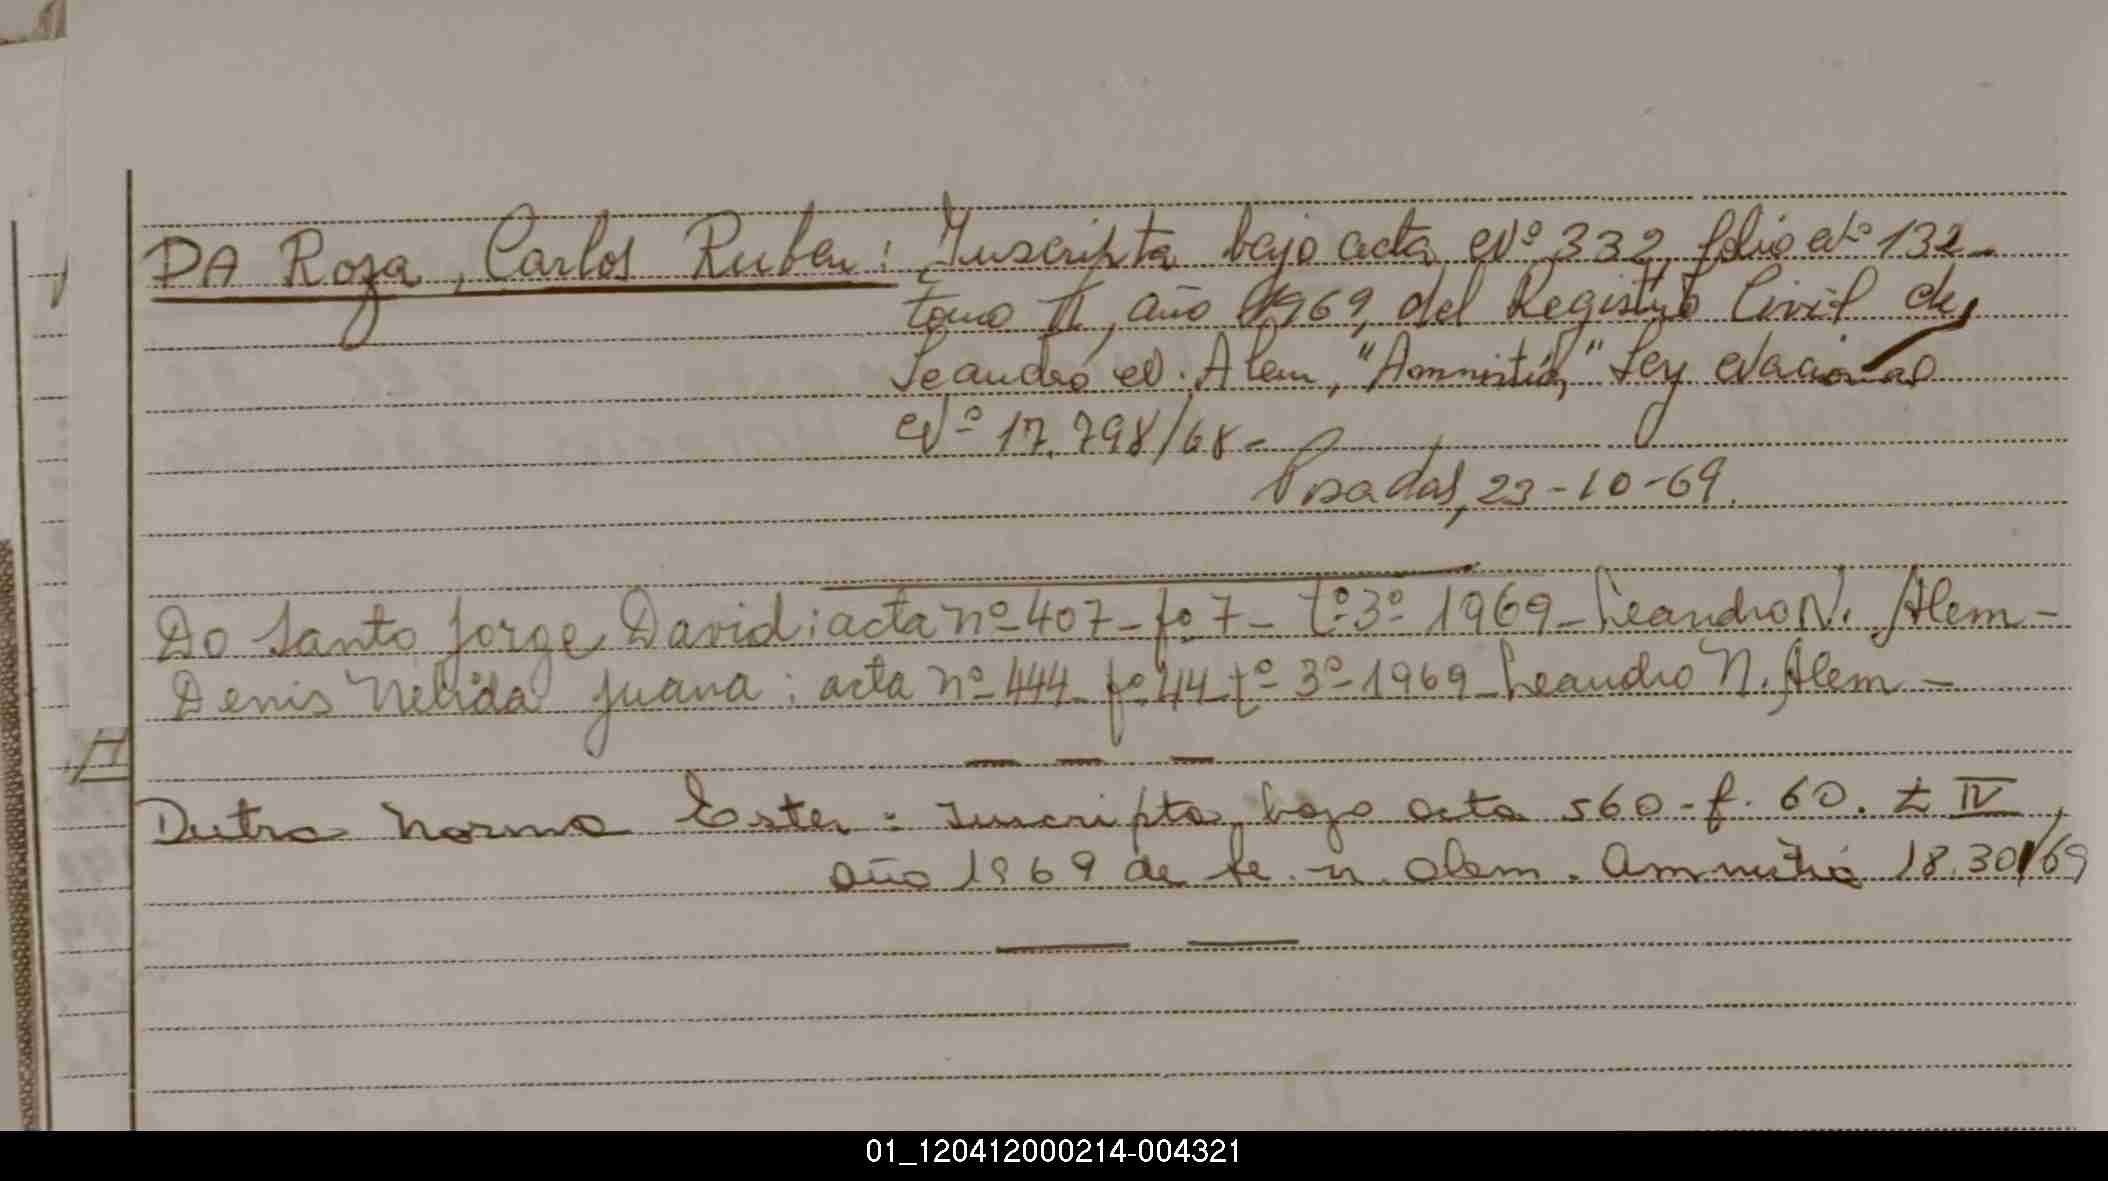 DA Roza, Carlos Ruben: Inscripta bajo acta Nº 332, folio Nº 132-
tomo II, año 1969, del Registro Civil de
Leandro N. Alem, "Amnistia," Ley Nacional
Nº 17.798/68-
Posadas, 23-10-69.
Do Santo Jorge David: acta nº 407- fº 7- tº 3º 1969- Leandro N. Alem-
Denis Nelida Juana: acta nº 444- fº 44 tº 3º 1969- Leandro N. Alem-
Dutra Norma Ester: Inscripta bajo acta 560- f. 60. t IV,
año 1969 de Le. n. alem. Amnistia 18.301/69
01_120412000214-004321